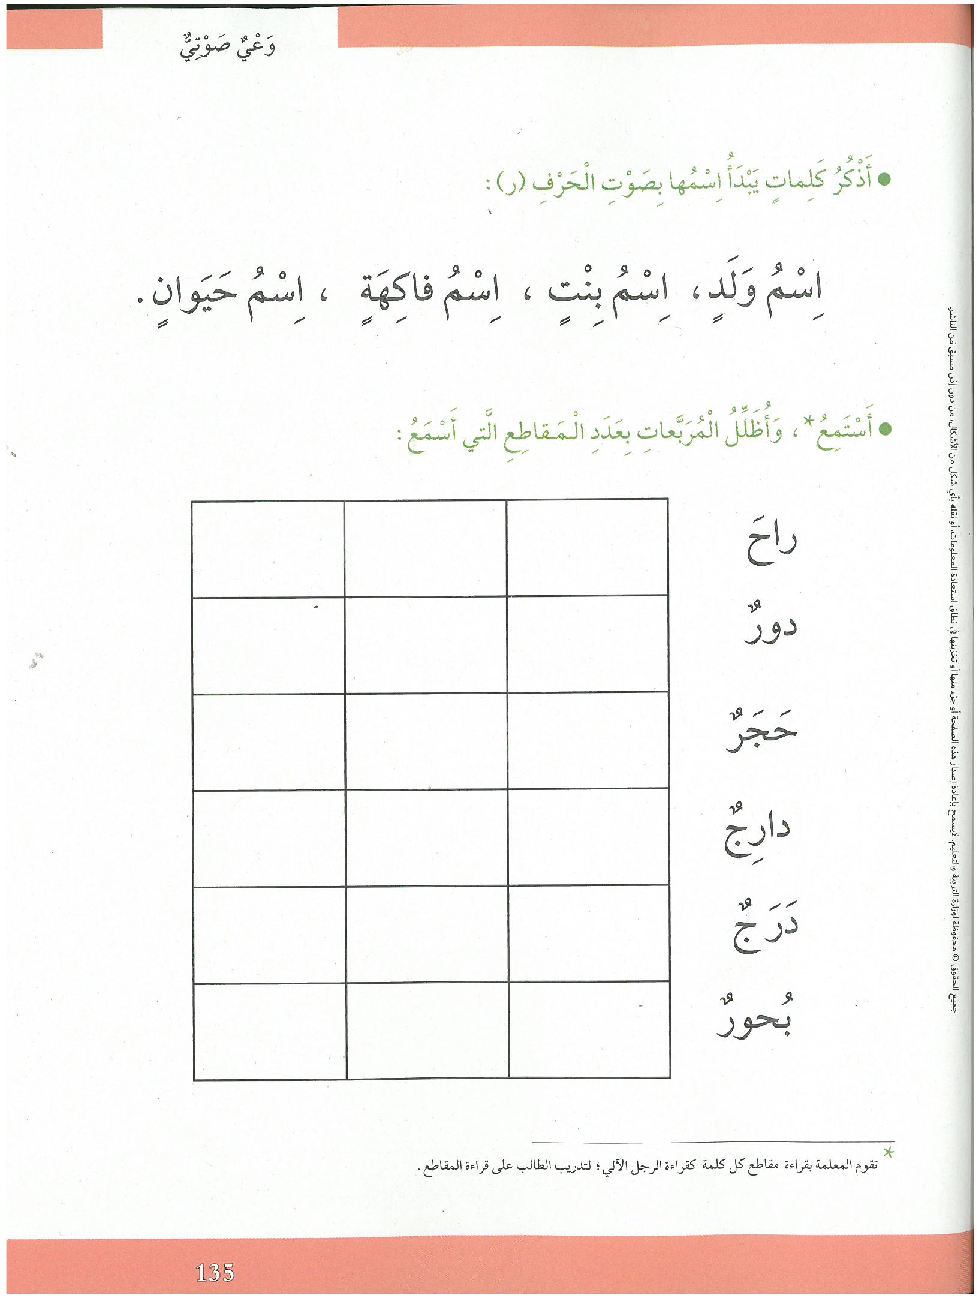 وَعْيٌ صَوْتِيٌّ
● أَذْكُرُ كَلِماتٍ يَبْدَأُ اِسْمُها بِصَوْتِ الْحَرْفِ (ر) :
اِسْمُ وَلَدٍ ، اِسْمُ بِنْتٍ ، اِسْمُ فاكِهَةٍ ، اِسْمُ حَيَوانٍ .
● أَسْتَمِعُ* ، وَأُظَلِّلُ الْمُرَبَّعاتِ بِعَدَدِ الْمَقاطِعِ الَّتي أَسْمَعُ :
راحَ
دورٌ
حَجَرٌ
دارِجٌ
دَرَجٌ
بُحورٌ
* تقوم المعلمة بقراءة مقاطع كل كلمة كقراءة الرجل الآلي ؛ لتدريب الطالب على قراءة المقاطع .
جميع الحقوق © محفوظة لوزارة التربية والتعليم. لايسمح بإعادة إصدار هذه الصفحة أو جزء منها أو تخزينها في نطاق استعادة المعلومات، أو نقله بأي شكل من الأشكال، من دون إذن مسبق من الناشر.
135